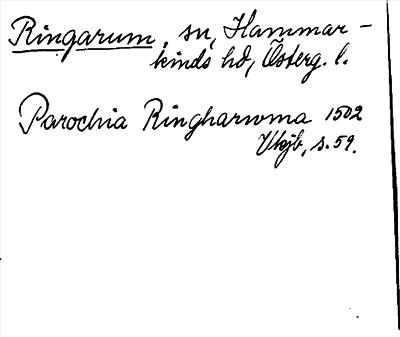 Ringarum, sn, Hammar-
kinds hd, Österg. l.
Parochia Ringharwma 1502
Vkjb, s. 59.